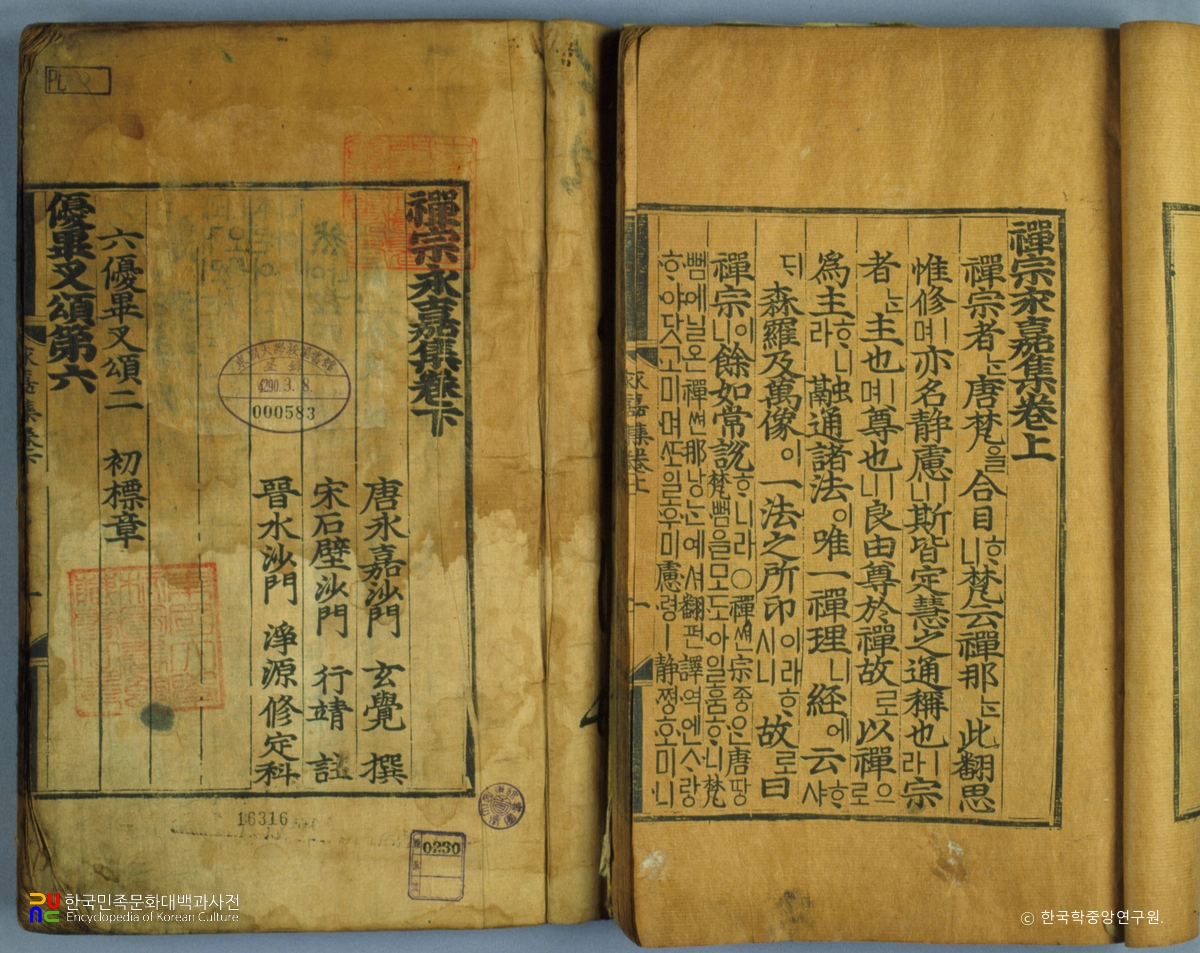 禪宗永嘉集卷下
唐永嘉沙門 玄覺 撰
宋石壁沙門 行靖 註
晉水沙門 淨源修定科
六優畢叉頌二 初標章
優畢叉頌第六
4290.3.8.
000583
16316
0230
禪宗永嘉集卷上
禪宗者는唐梵을合目ᄒᆞ니梵云禪那는此翻思
惟修ㅣ며亦名静慮ㅣ니斯皆定慧之通稱也ㅣ라宗
者는主也ㅣ며尊也ㅣ니良由尊於禪故로以禪으로
爲主ᄒᆞ니라融通諸法이唯一禪理니経에云ᄒᆞ샤
ᄃᆡ森羅及萬像이一法之所印이라ᄒᆞ시니故로曰
禪宗이니餘如常說ᄒᆞ니라○禪쎤宗종은唐땅
梵뻠을모도아일훔ᄒᆞ니梵
뻠에닐온禪쎤那낭ᄂᆞᆫ예셔翻펀譯역엔ᄉᆞ랑
ᄒᆞ야닷고미며ᄯᅩ일후미静쪙慮령ㅣ니
한국민족문화대백과사전
Encyclopedia of Korean Culture
© 한국학중앙연구원.